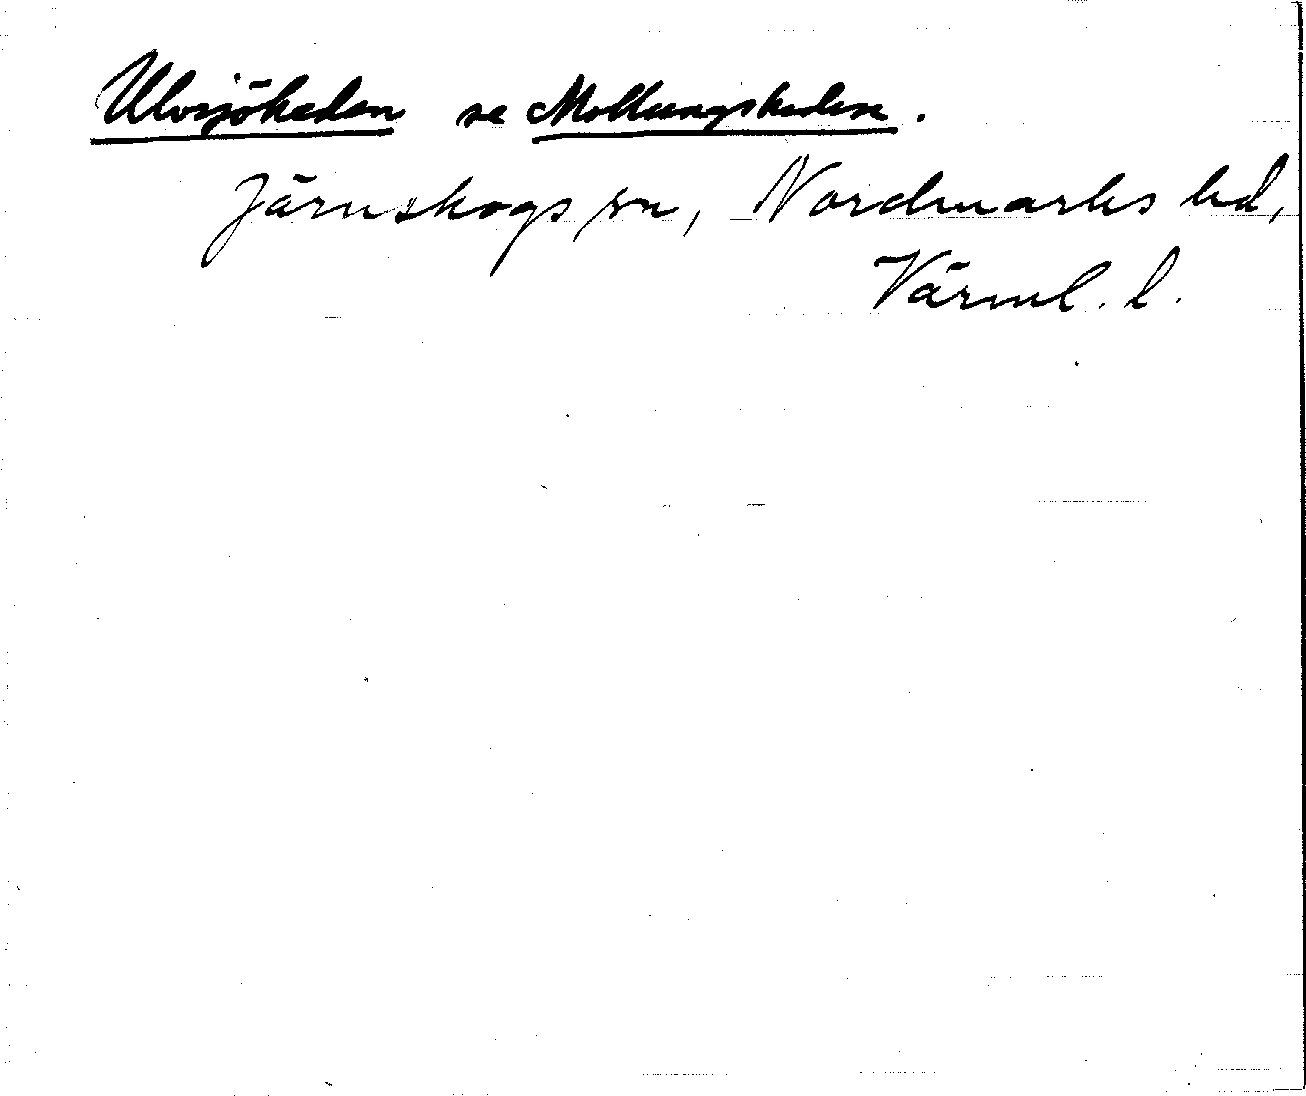 Ulvsjöheden se Mollungsheden.
Järnskogs sn, Nordmarks hd,
Värml. l.